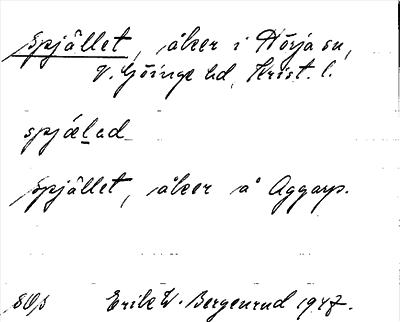 Spjället, åker i Nörja sn,
V. Göinge hd, Krist. l.
spjælad
Spjället, åker å Aggarp.
Erik W. Bergenrud 1947.